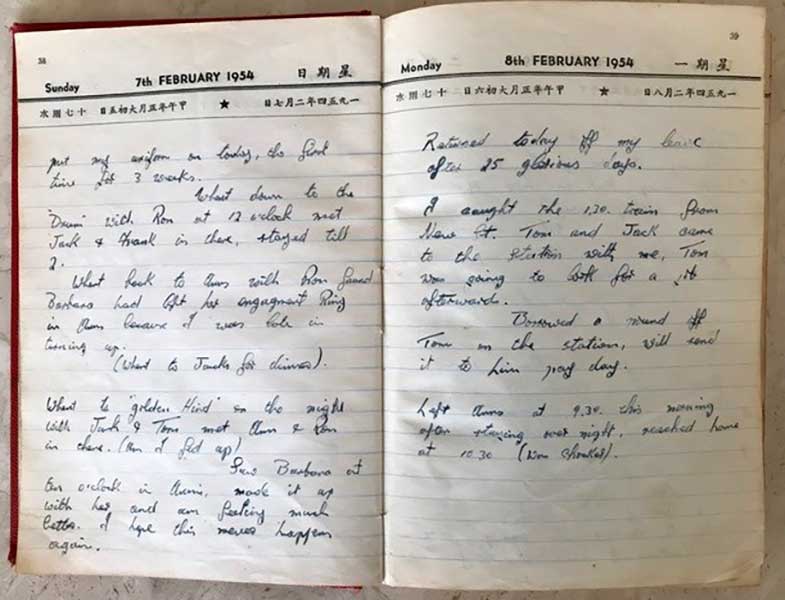 38
Sunday 7th FEBRUARY 1954 日期星
水雨七十 日五初大月正年午甲 ★ 日七月二年四五九一
put my uniform on today, the first
time for 3 weeks.
Went down to the
"Drum" with Ron at 12 o'clock met
Jack & Frank in there, stayed till
2.
Went back to Anns with Ron found
Barbara had left her engagment Ring
in Anns because I was late in
turning up.
(Went to Jacks for dinner).
Went to "golden Hind" in the night
with Jack & Tom met Ann & Ron
in there. (am I fed up)
Saw Barbara at
ten o'clock in Anns, made it up
with her and am feeling much
better. I hope this never happens
again.
39
Monday 8th FEBRUARY 1954 一期星
水雨七十 日六初大月正年午甲 ★ 日八月二年四五九一
Returned today off my leave
after 25 glorious days.
I caught the 1.30. train from
New St. Tom and Jack came
to the station with me, Tom
was going to look for a job
afterwards.
Borrowed a round off
Tom on the station, will send
it to him pay day.
Left Anns at 9.30. this morning
after staying over night, reached home
at 10.30 (Mom shouted).